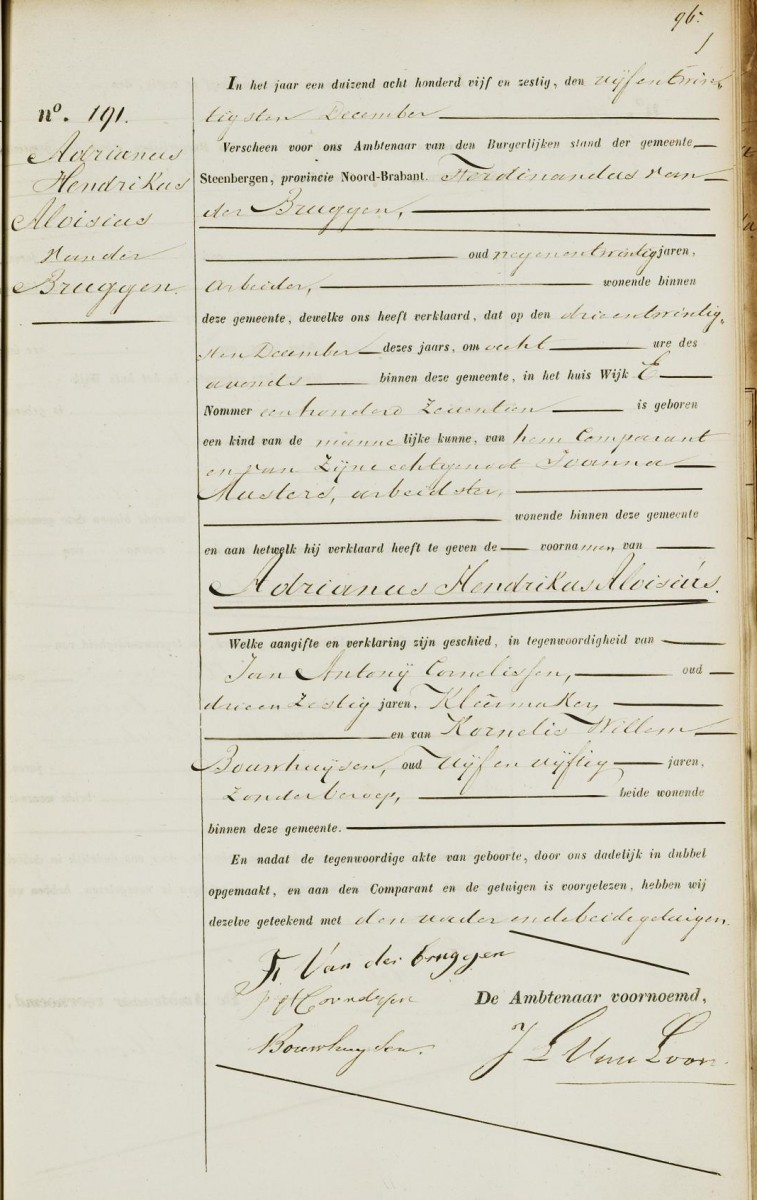 96.
nº. 191.
Adrianus
Hendrikus
Aloisius
van der
Bruggen.
In het jaar een duizend acht honderd vijf en zestig, den vijfentwin-
tigsten December
Verscheen voor ons Ambtenaar van den Burgerlijken stand der gemeente
Steenbergen, provincie Noord-Brabant. Ferdinandus van
der Bruggen,
oud negenentwintig jaren,
arbeider, wonende binnen
deze gemeente, dewelke ons heeft verklaard, dat op den drieentwintig-
sten December dezes jaars, om acht ure des
avonds binnen deze gemeente, in het huis Wijk E
Nommer eenhonderd zeventien is geboren
een kind van de mannelijke kunne, van hem Comparant
en van zijne echtgenoot Joanna
Musters, arbeidster,
wonende binnen deze gemeente
en aan hetwelk hij verklaard heeft te geven de voornamen van
Adrianus Hendrikus Aloisius.
Welke aangifte en verklaring zijn geschied, in tegenwoordigheid van
Jan Antonij Cornelissen, oud
drieenzestig jaren, Kleermaker,
en van Kornelis Willem
Bouwhuijsen, oud Vijfenvijftig jaren,
zonder beroep, beide wonende
binnen deze gemeente.
En nadat de tegenwoordige akte van geboorte, door ons dadelijk in dubbel
opgemaakt, en aan den Comparant en de getuigen is voorgelezen, hebben wij
dezelve geteekend met den vader en de beide getuigen.
F Van der bruggen
De Ambtenaar voornoemd,
Bouwhuysen.
J L Van Loon